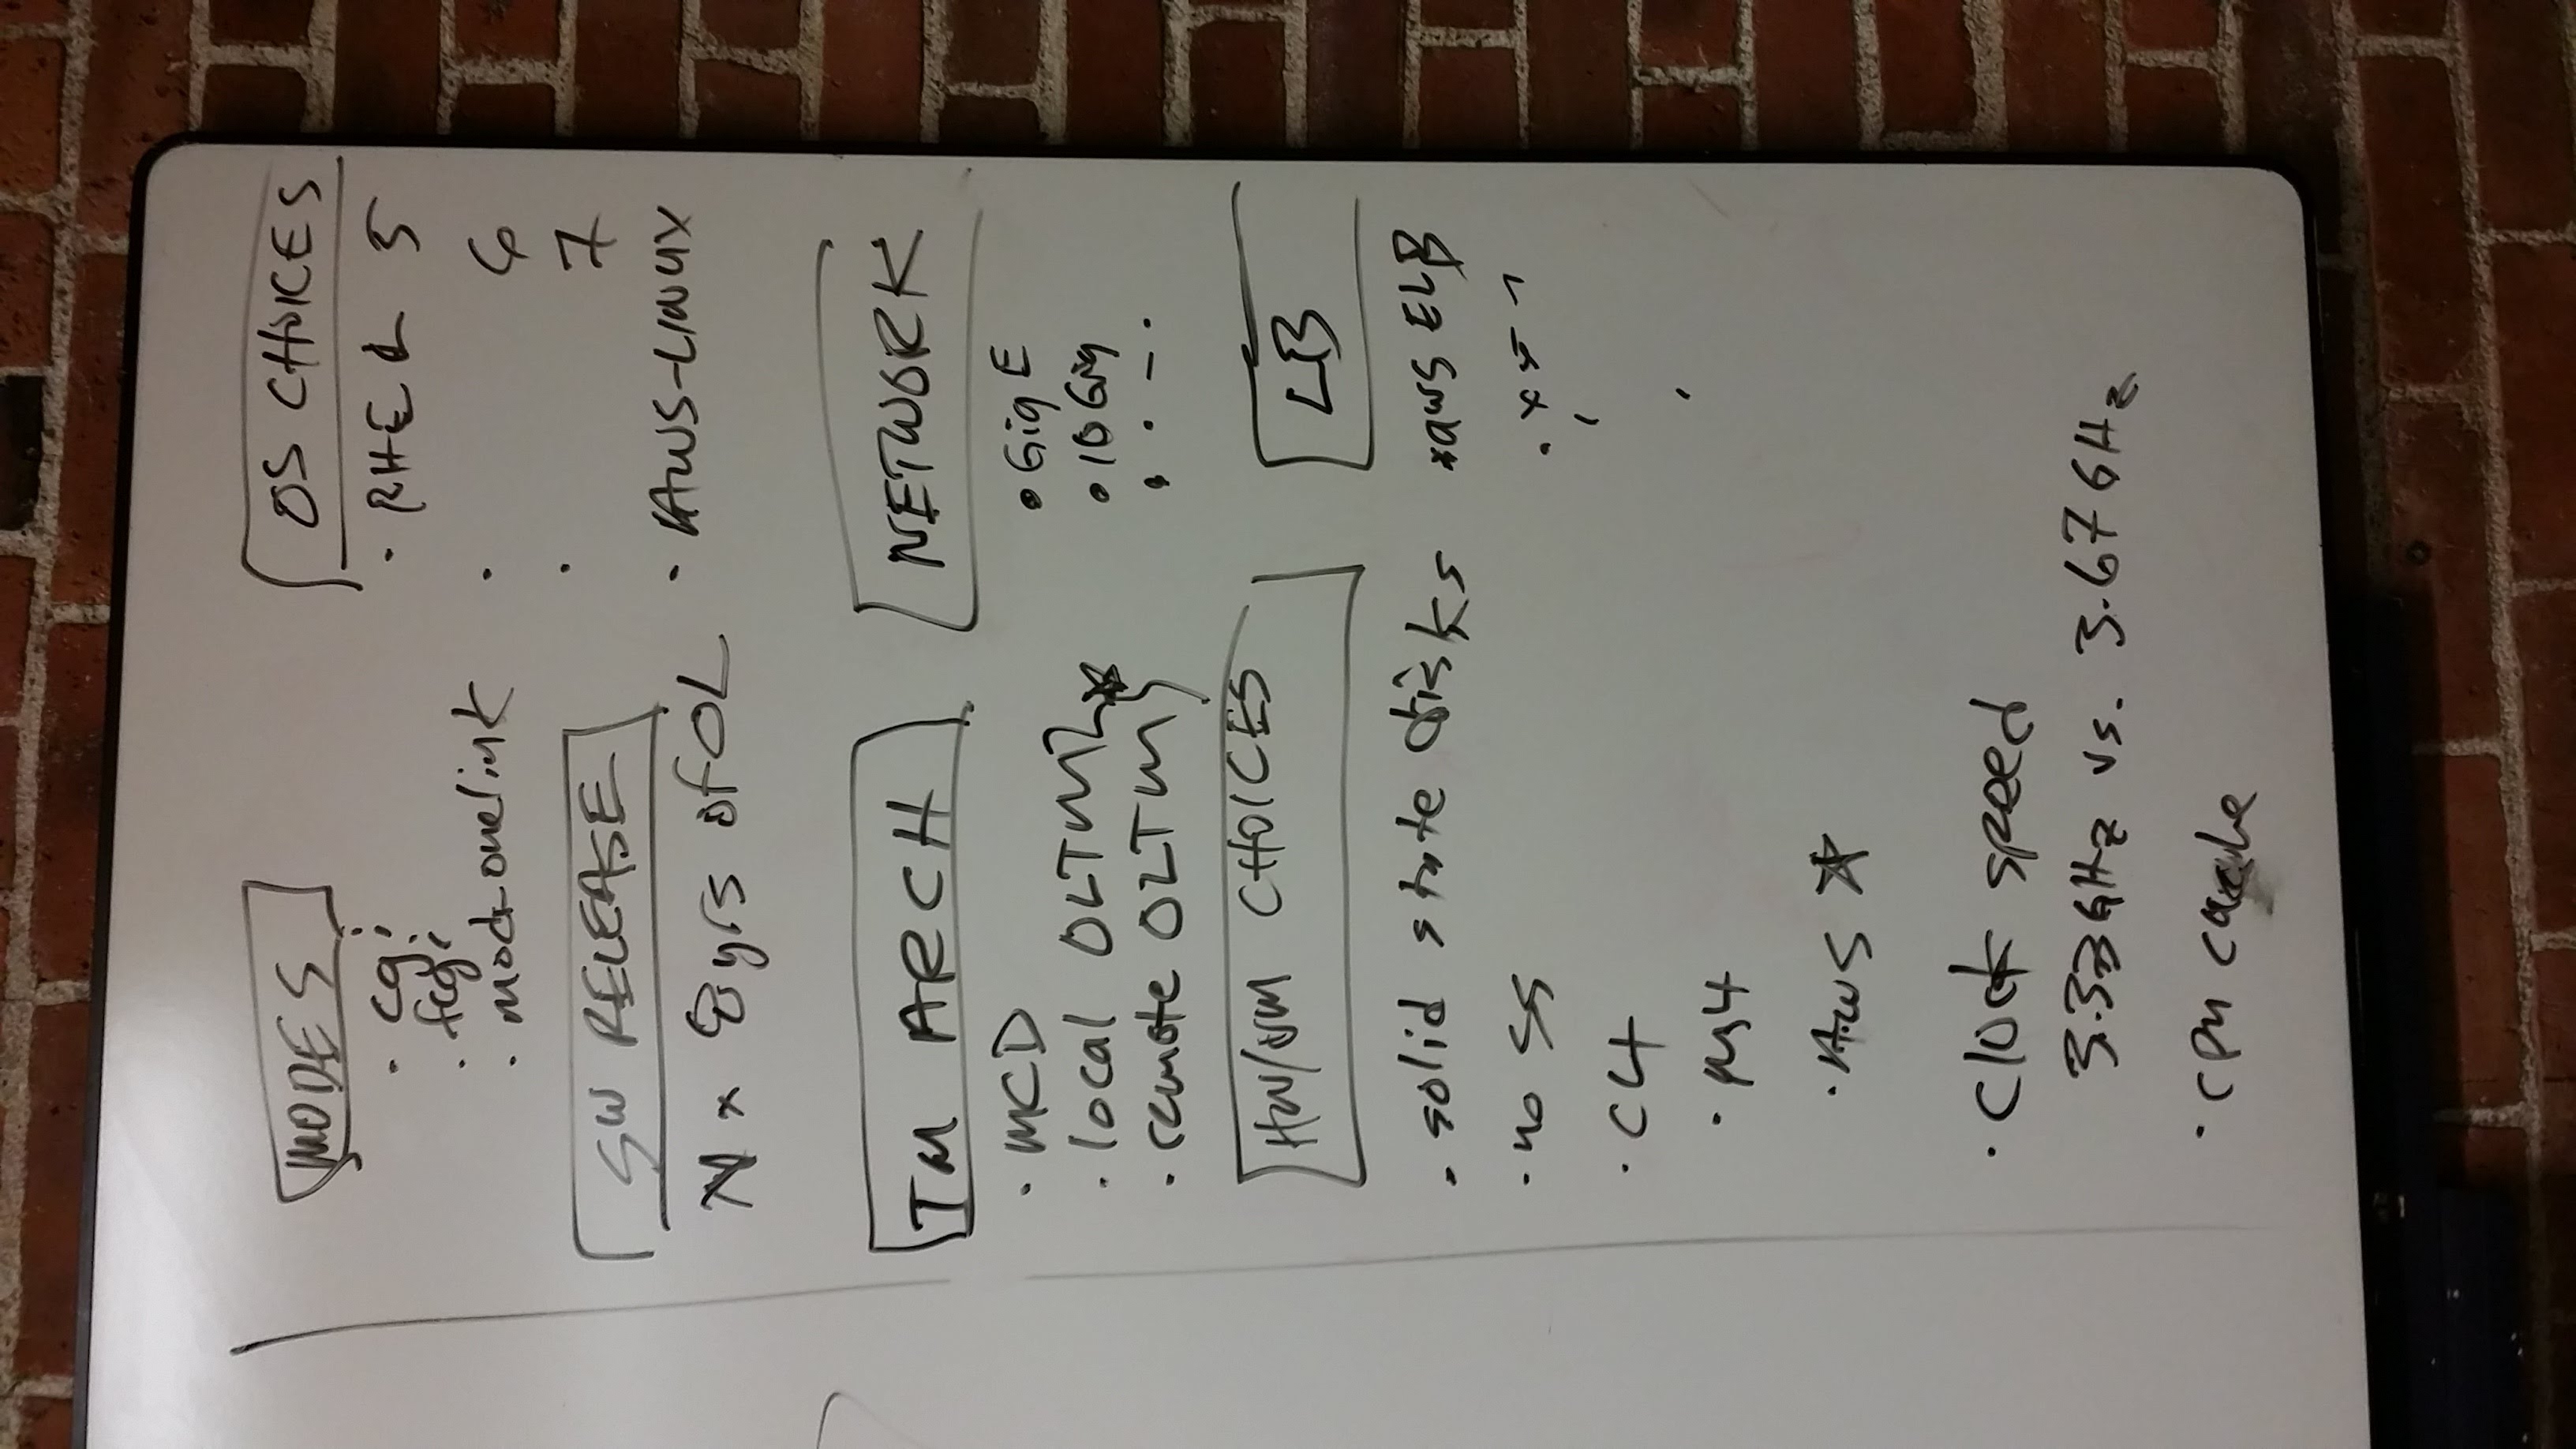 MODES
· cgi
· fcgi
· mod-onelink
SW RELEASE
N x 8yrs of OL
TM ARCH
· MCD
· local OLTM
· remote OLTM
HW/VM CHOICES
· solid state disks
· no SS
· C4
· M4
· AWS
· clock speed
3.33GHz vs. 3.67GHz
· cpu cache
OS CHOICES
· RHEL 5
· 6
· 7
· AWS-LINUX
NETWORK
· GigE
· 10Gig
LB
*AWS ELB